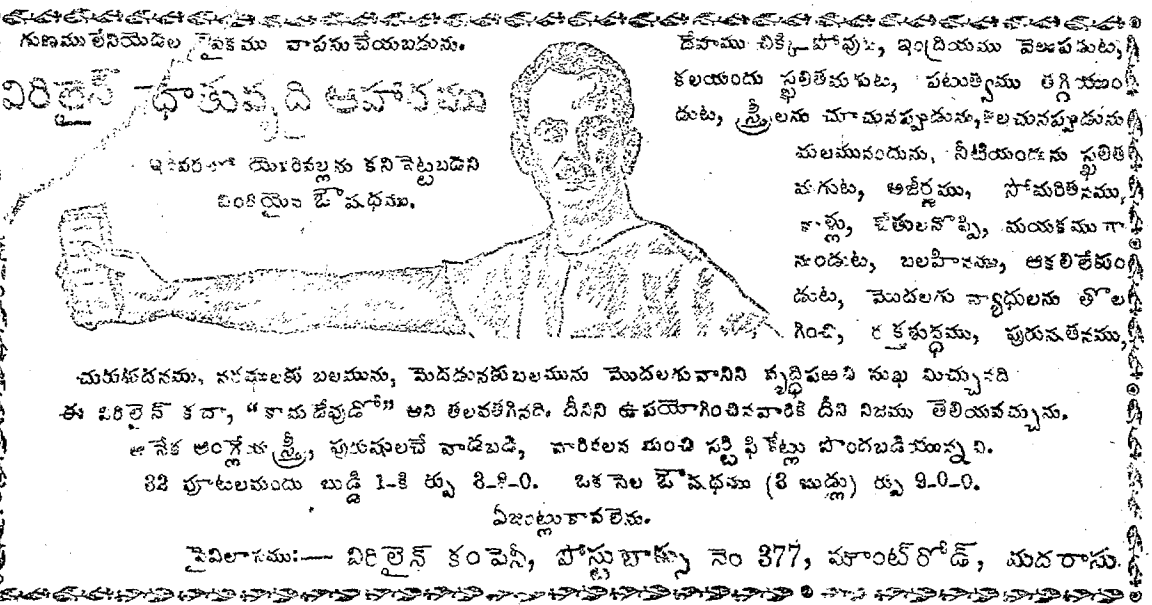 గుణములేనియెడల పైకము వాపసుచేయబడును.
విరిలైన్ ధాతువృద్ది ఆహారము
ఇదివరలో యెవరివల్లను కనిపెట్టబడని
వింతయైన ఔషధము.
దేహము చిక్కి పోవుట, ఇంద్రియము వెలుపడుట,
కలయందు స్ఖలితమగుట, పటుత్వము తగ్గియుం
డుట, స్త్రీలను చూచునప్పుడును, తలచునప్పుడును
మలమునందును, నీటియందును స్ఖలిత
మగుట, అజీర్ణము, సోమరితనము,
కాళ్లు, చేతులనొప్పి, మయకముగా
నుండుట, బలహీనము, ఆకలిలేకుం
డుట, మొదలగు వ్యాధులను తొల
గించి, రక్తశుద్ధము, పురుషతనము,
చురుకుదనము, నరములకు బలమును, మెదడునకుబలమును మొదలగువానిని వృద్ధిపఱచి సుఖ మిచ్చునది
ఈ విరిలైన్ కదా, “కామదేవుడో” అని తలవతగినది. దీనిని ఉపయోగించినవారికే దీని నిజము తెలియవచ్చును.
అనేక ఆంగ్లేయ స్త్రీ, పురుషులచే వాడబడి, వారివలన మంచి సర్టిఫికేట్లు పొందబడియున్నవి.
32 పూటలమందు బుడ్డి 1-కి రూ 3-8-0. ఒక నెల ఔషధము (3 బుడ్లు) రూ 9-0-0.
ఏజంట్లుకావలెను.
పైవిలాసము:— విరిలైన్ కంపెనీ, పోస్టుబాక్సు నెం 377, మౌంట్‌రోడ్, మదరాసు.